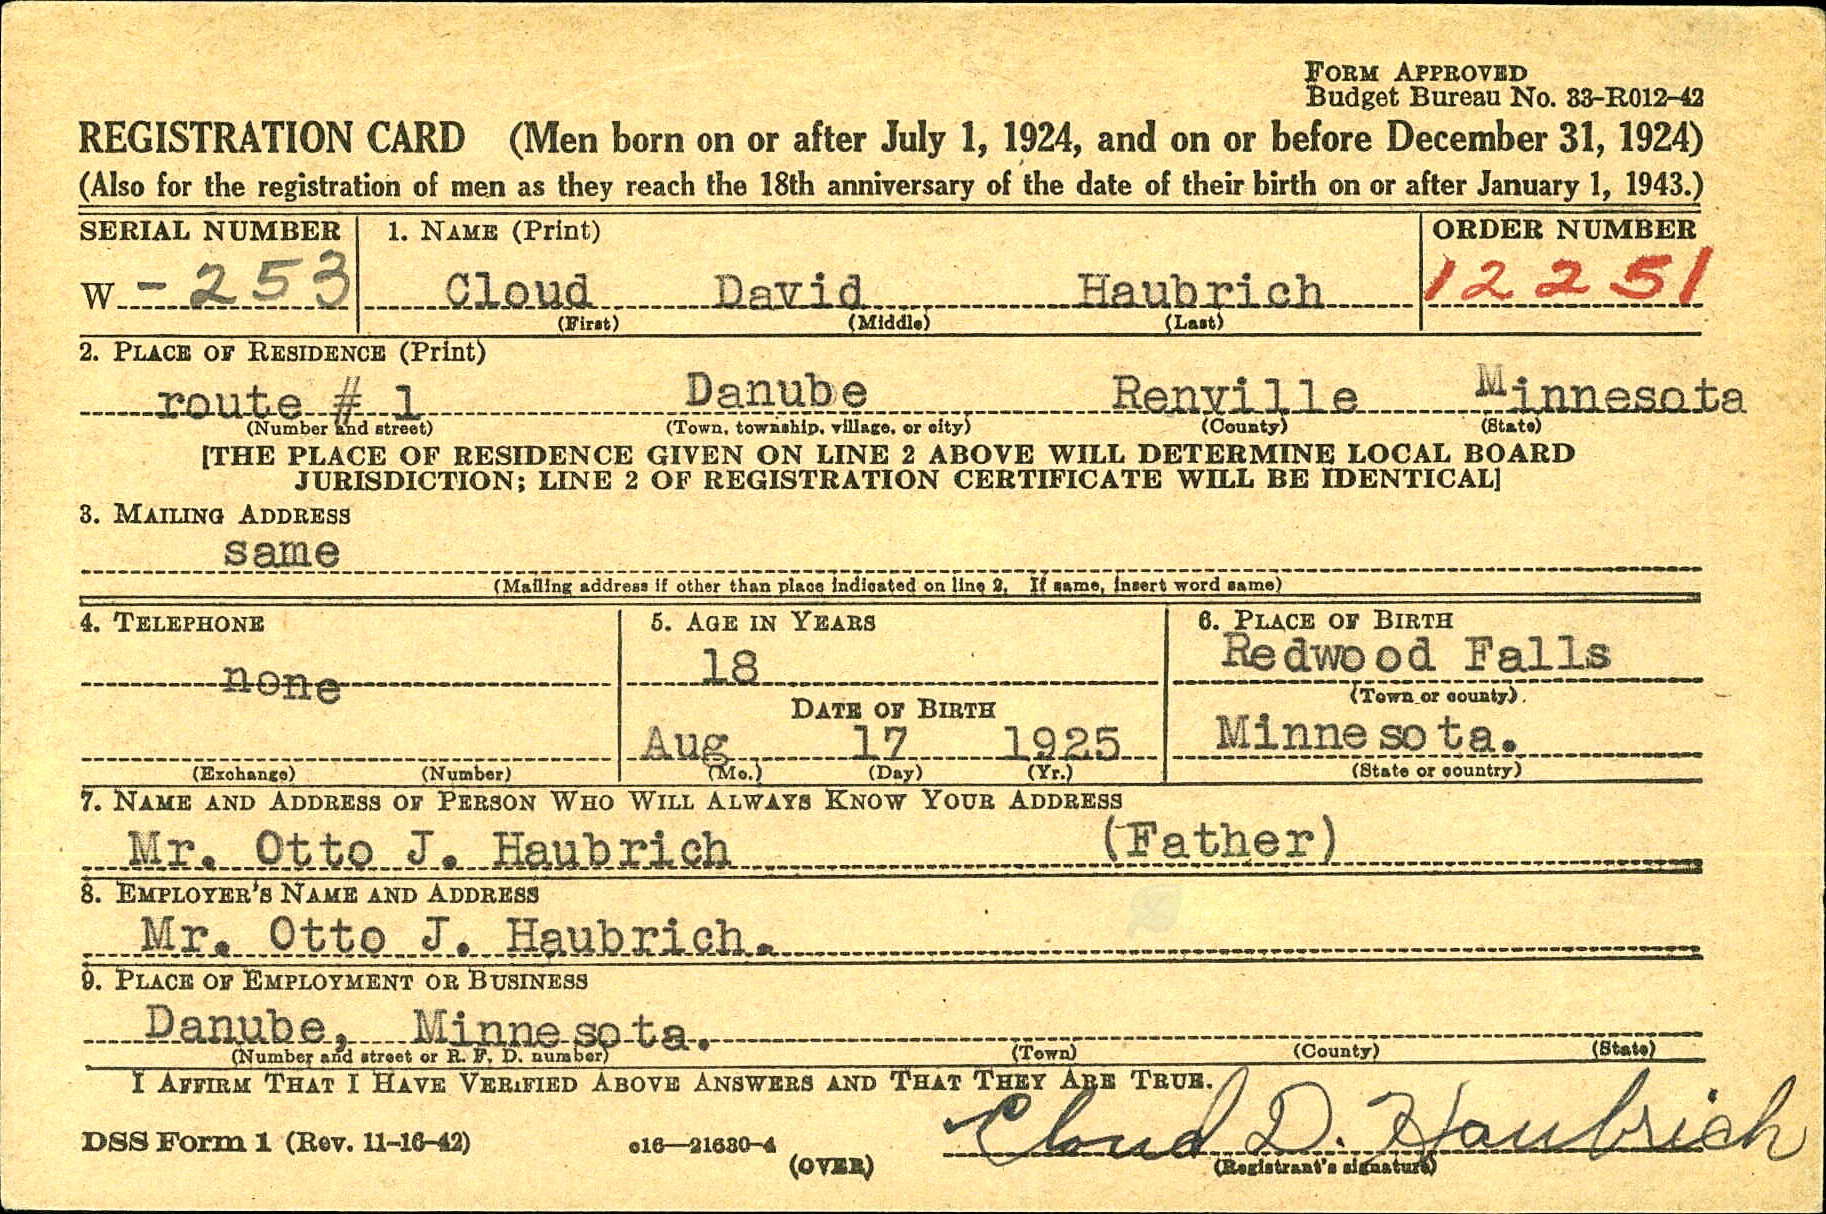 FORM APPROVED
Budget Bureau No. 33-R012-42
REGISTRATION CARD (Men born on or after July 1, 1924, and on or before December 31, 1924)
(Also for the registration of men as they reach the 18th anniversary of the date of their birth on or after January 1, 1943.)
SERIAL NUMBER 1. NAME (Print) ORDER NUMBER
W - 253 Cloud David Haubrich 12251
(First) (Middle) (Last)
2. PLACE OF RESIDENCE (Print)
route # 1 Danube Renville Minnesota
(Number and street) (Town, township, village, or city) (County) (State)
[THE PLACE OF RESIDENCE GIVEN ON LINE 2 ABOVE WILL DETERMINE LOCAL BOARD
JURISDICTION; LINE 2 OF REGISTRATION CERTIFICATE WILL BE IDENTICAL]
3. MAILING ADDRESS
same
(Mailing address if other than place indicated on line 2. If same, insert word same)
4. TELEPHONE 5. AGE IN YEARS 6. PLACE OF BIRTH
none 18 Redwood Falls
(Town or county)
DATE OF BIRTH
Aug 17 1925 Minnesota.
(Exchange) (Number) (Mo.) (Day) (Yr.) (State or country)
7. NAME AND ADDRESS OF PERSON WHO WILL ALWAYS KNOW YOUR ADDRESS
Mr. Otto J. Haubrich (Father)
8. EMPLOYER'S NAME AND ADDRESS
Mr. Otto J. Haubrich.
9. PLACE OF EMPLOYMENT OR BUSINESS
Danube, Minnesota.
(Number and street or R. F. D. number) (Town) (County) (State)
I AFFIRM THAT I HAVE VERIFIED ABOVE ANSWERS AND THAT THEY ARE TRUE.
DSS Form 1 (Rev. 11-16-42) c16—21630-4 Cloud D. Haubrich
(OVER) (Registrant's signature)